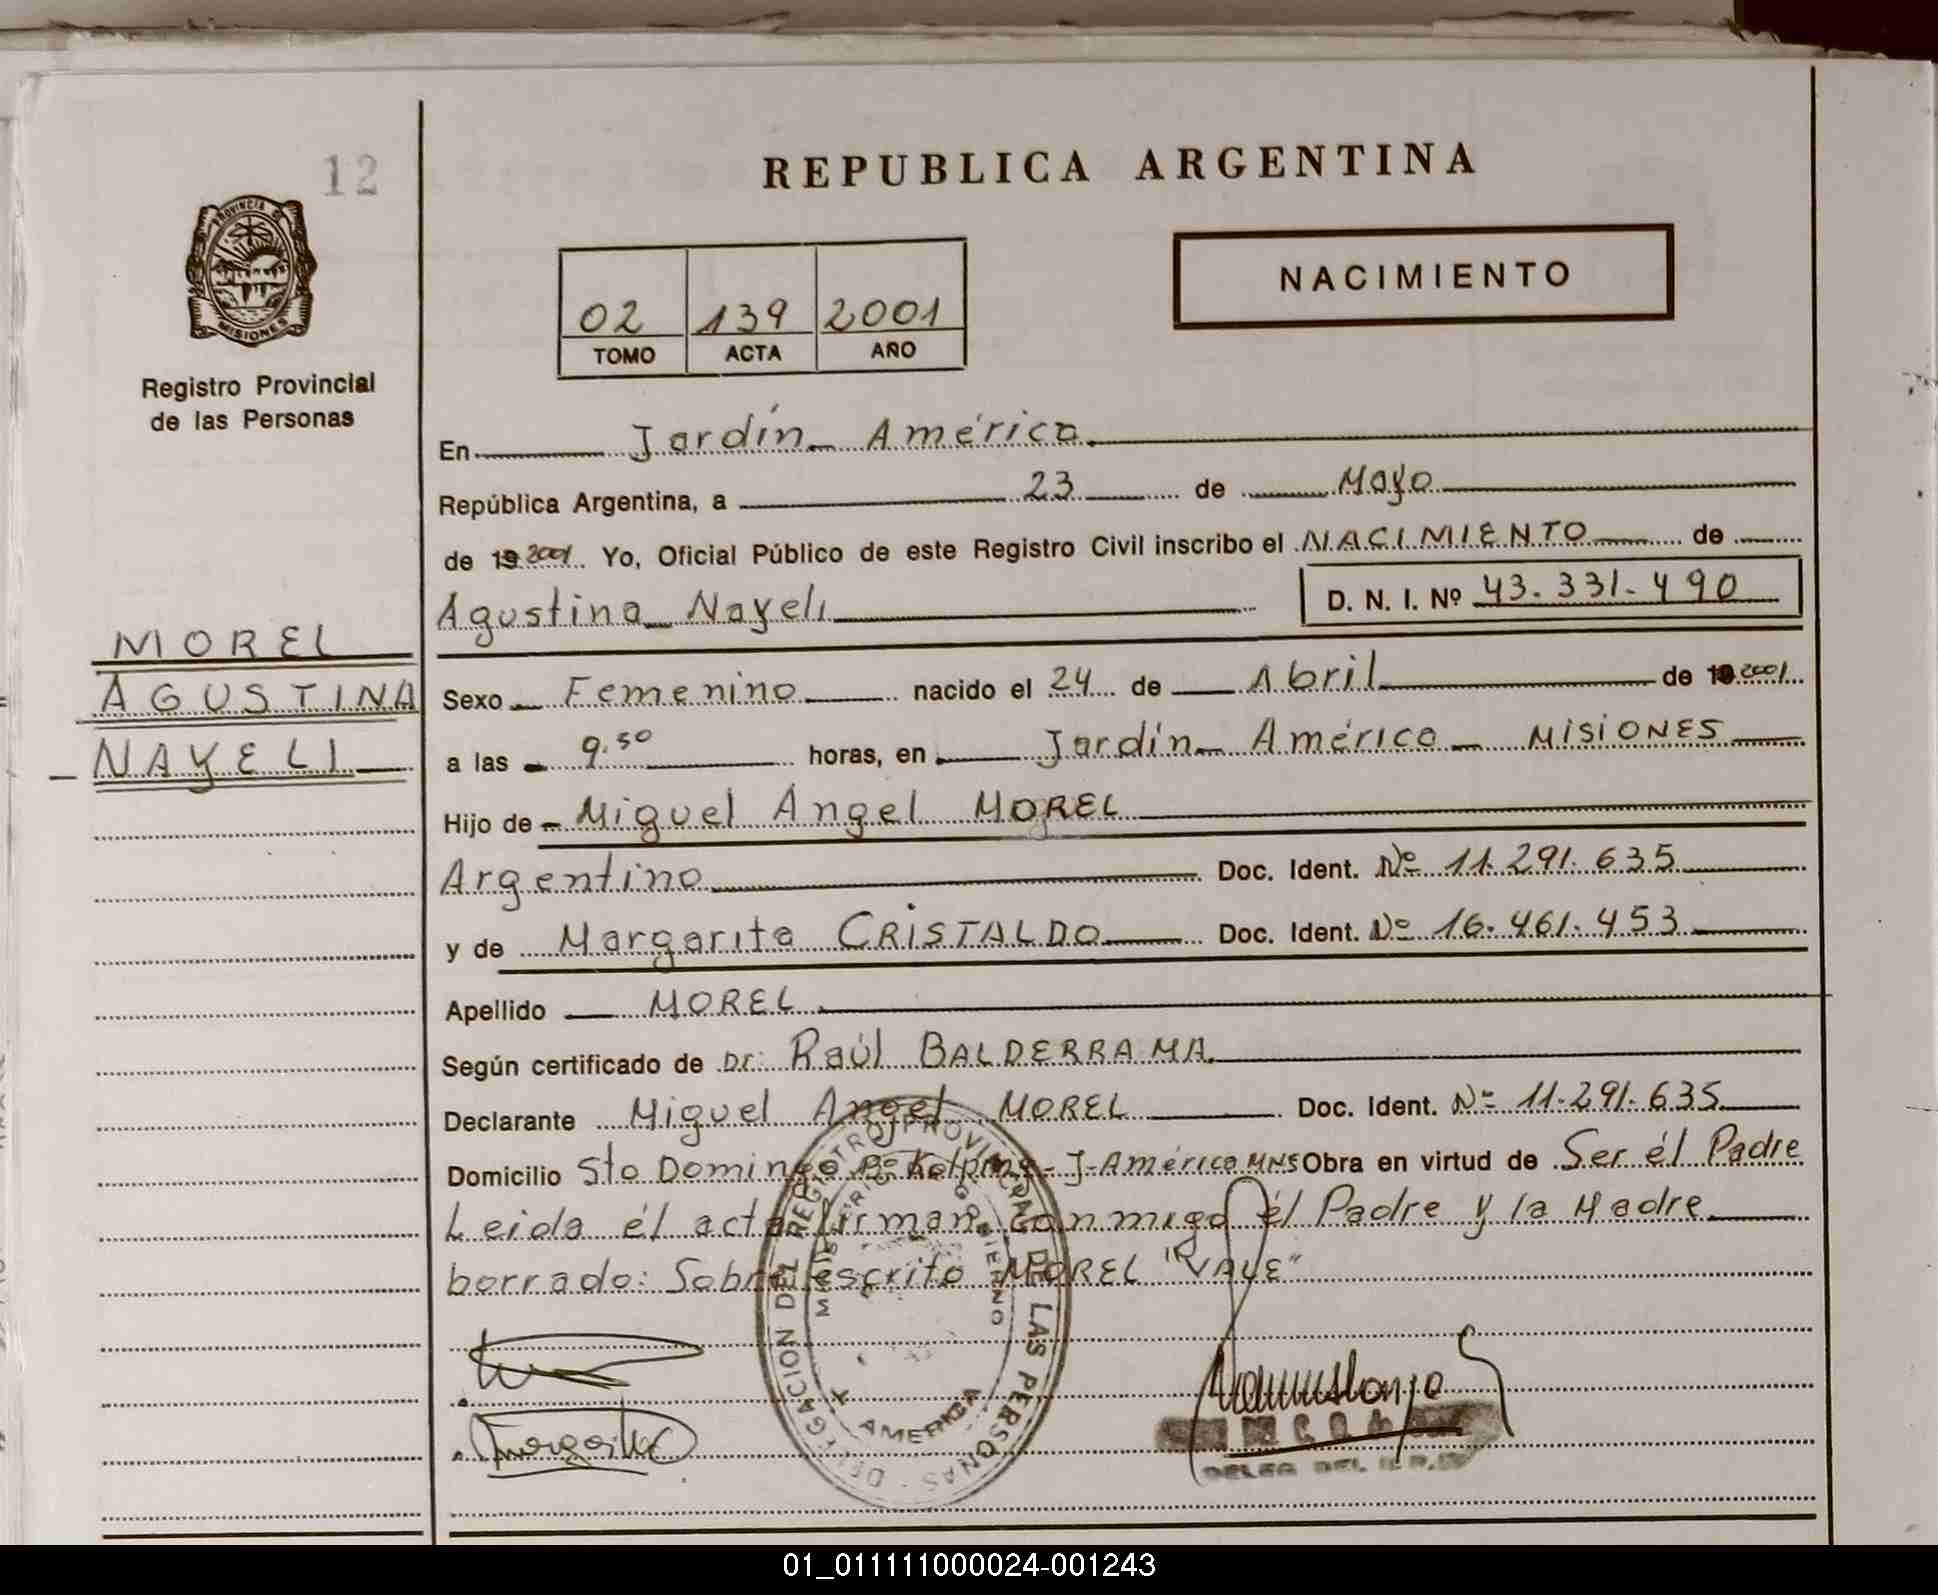 12
REPUBLICA ARGENTINA
PROVINCIA DE
MISIONES
NACIMIENTO
02 139 2001
TOMO ACTA AÑO
Registro Provincial
de las Personas
En Jardín América
República Argentina, a 23 de Mayo
de 19 2001 Yo, Oficial Público de este Registro Civil inscribo el NACIMIENTO de
Agustina Nayeli D. N. I. Nº 43.331.490
MOREL
AGUSTINA
NAYELI
Sexo Femenino nacido el 24 de Abril de 19 2001
a las 9.50 horas, en Jardín América MISIONES
Hijo de Miguel Angel MOREL
Argentino Doc. Ident. Nº 11.291.635
y de Margarita CRISTALDO Doc. Ident. Nº 16.461.453
Apellido MOREL
Según certificado de Dr: Raúl BALDERRAMA
Declarante Miguel Angel MOREL Doc. Ident. Nº 11.291.635
Domicilio Sto Domingo Bº Kolping - J-América MNS Obra en virtud de Ser él Padre
Leida él acta firman conmigo él Padre y la Madre
borrado: Sobre escrito MOREL "VALE"
DELEGACION DEL REGISTRO PROVINCIAL DE LAS PERSONAS
MINISTERIO DE GOBIERNO
AMERICA
Margarita
01_011111000024-001243